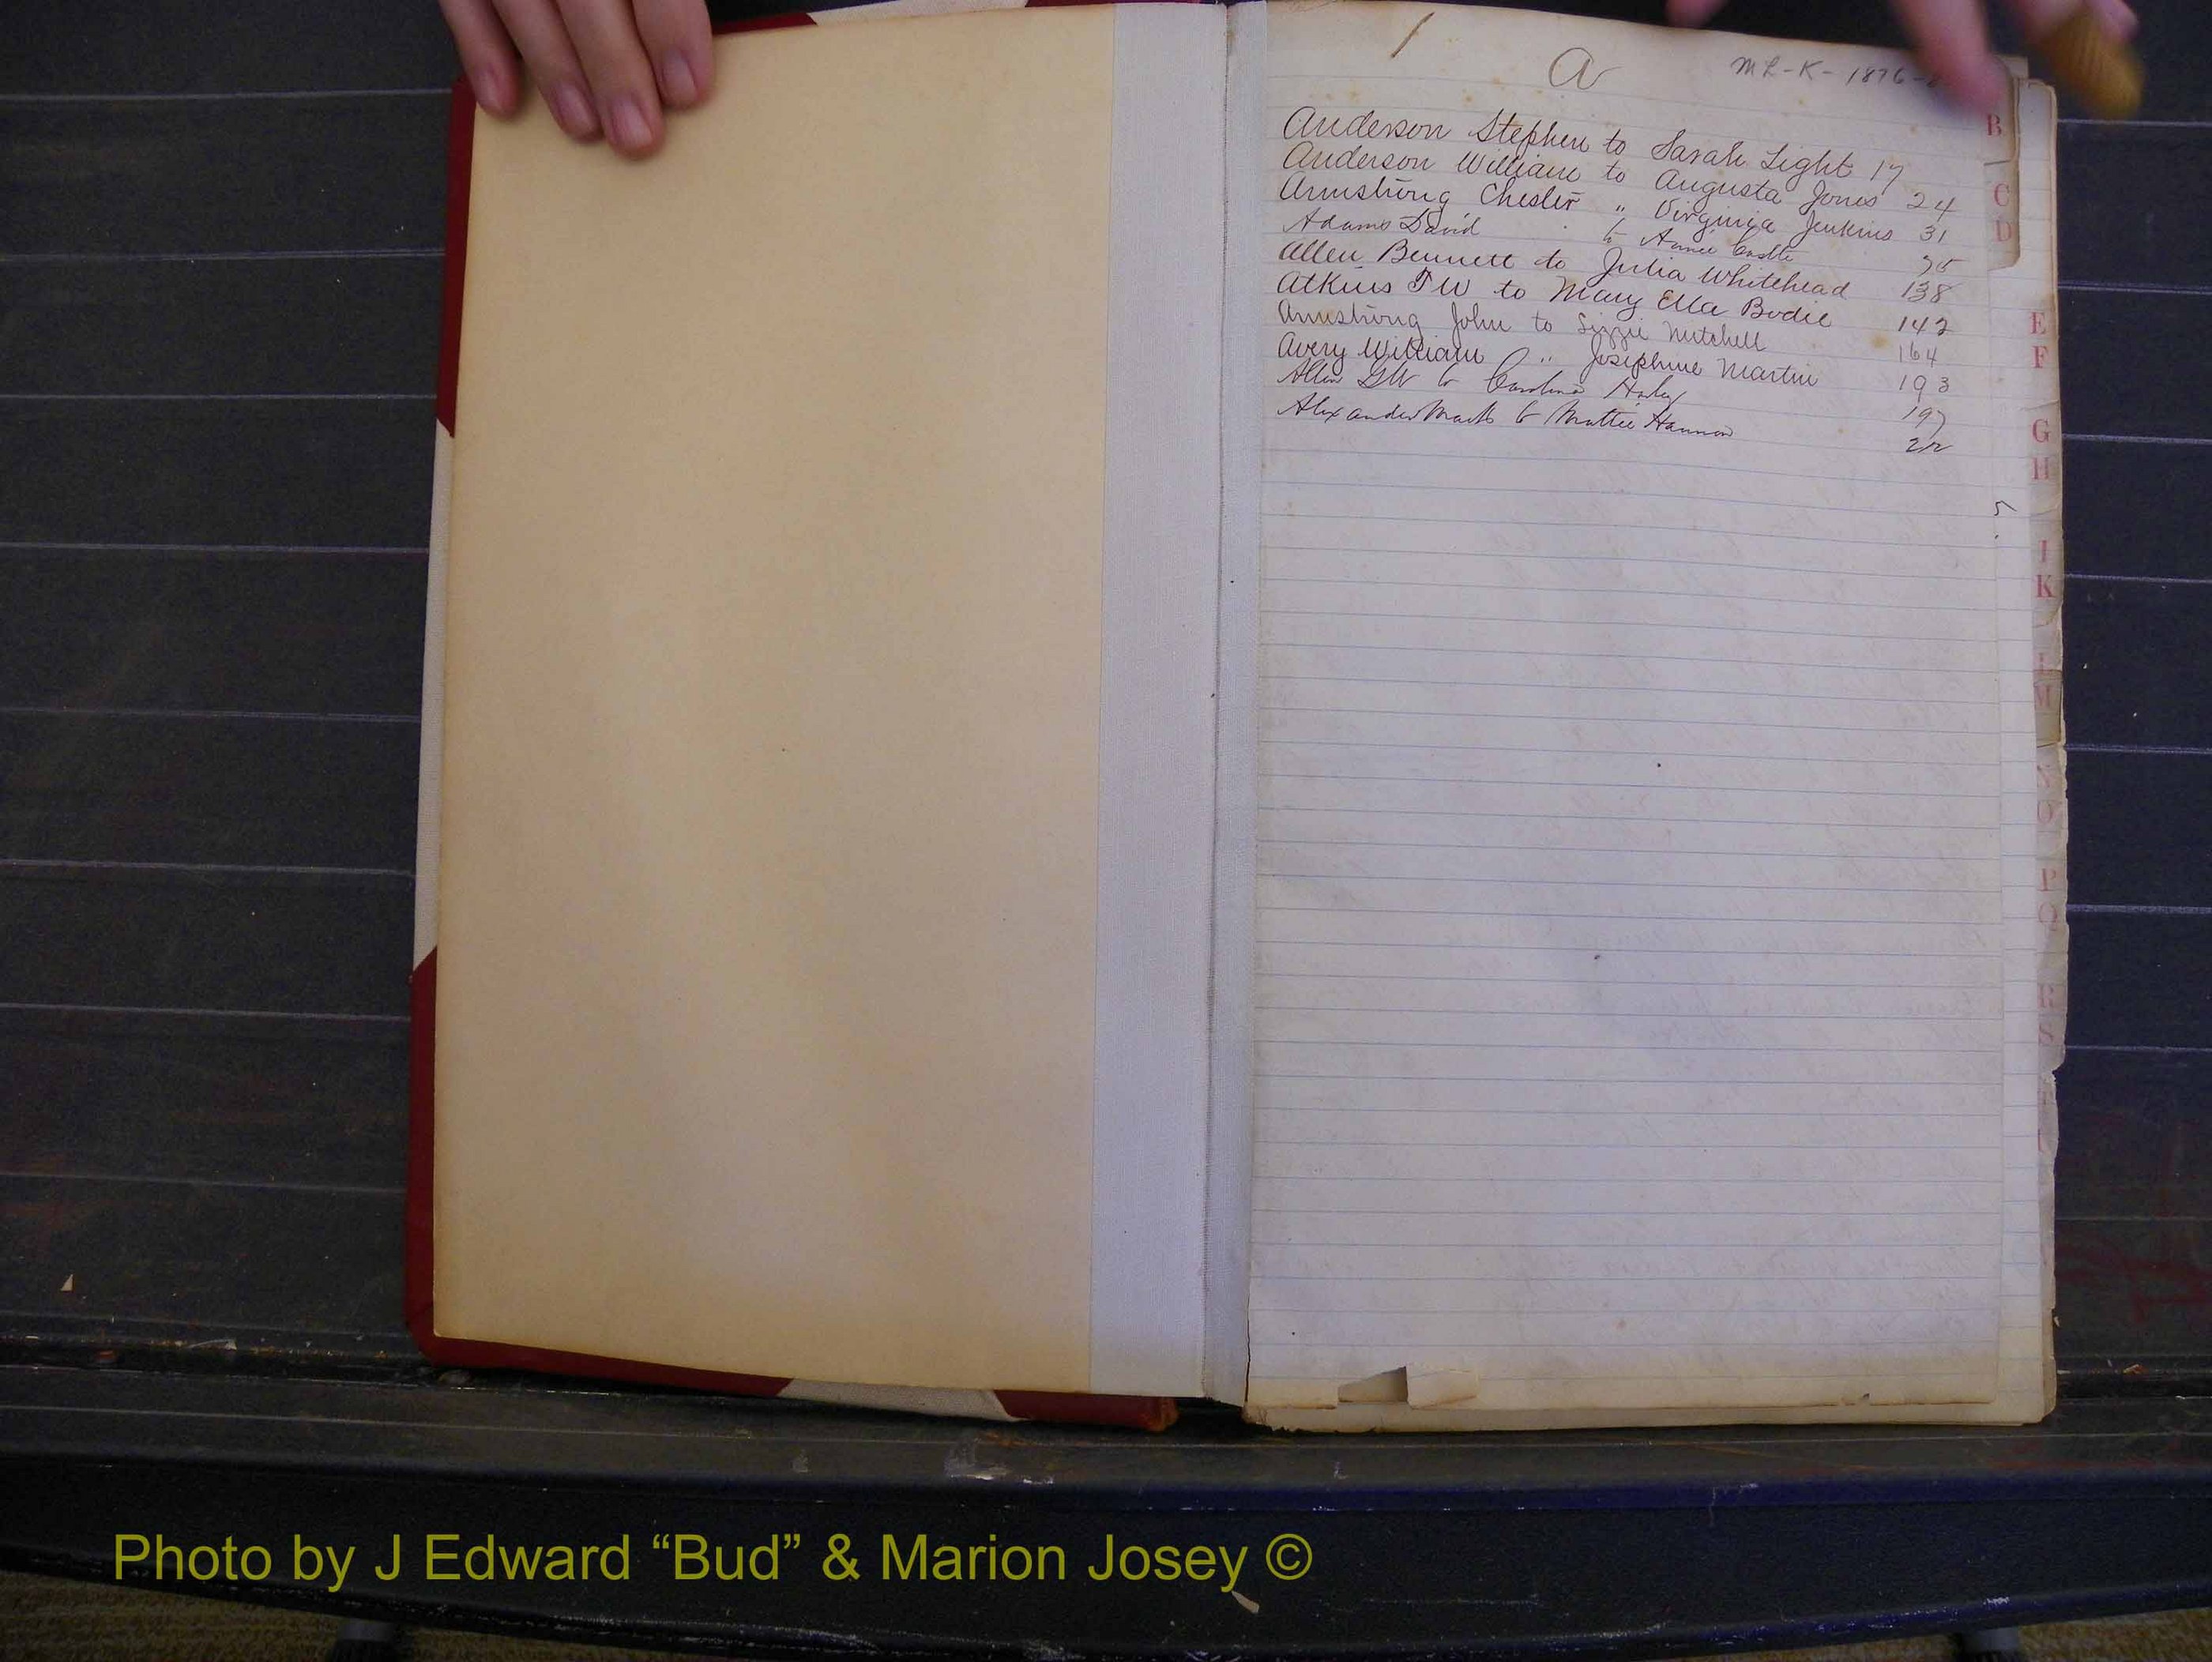 1
a
MR-K-1876-
Anderson Stephen to Sarah Light 17
Anderson William to Augusta Jones 24
Armstrong Chester " Virginia Jenkins 31
Adams David to Annie Castle 75
Allen Bennett to Julia Whitehead 138
Atkins T W to Mary Ella Bodie 142
Armstrong John to Lizzie Mitchell 164
Avery William " Josephine Martin 193
Allen GW to Caroline 197
Alexander Mack to Mattie Hannon
B
C
D
E
F
G
H
I
K
L
M
N
O
P
Q
R
S
T
Photo by J Edward “Bud” & Marion Josey ©